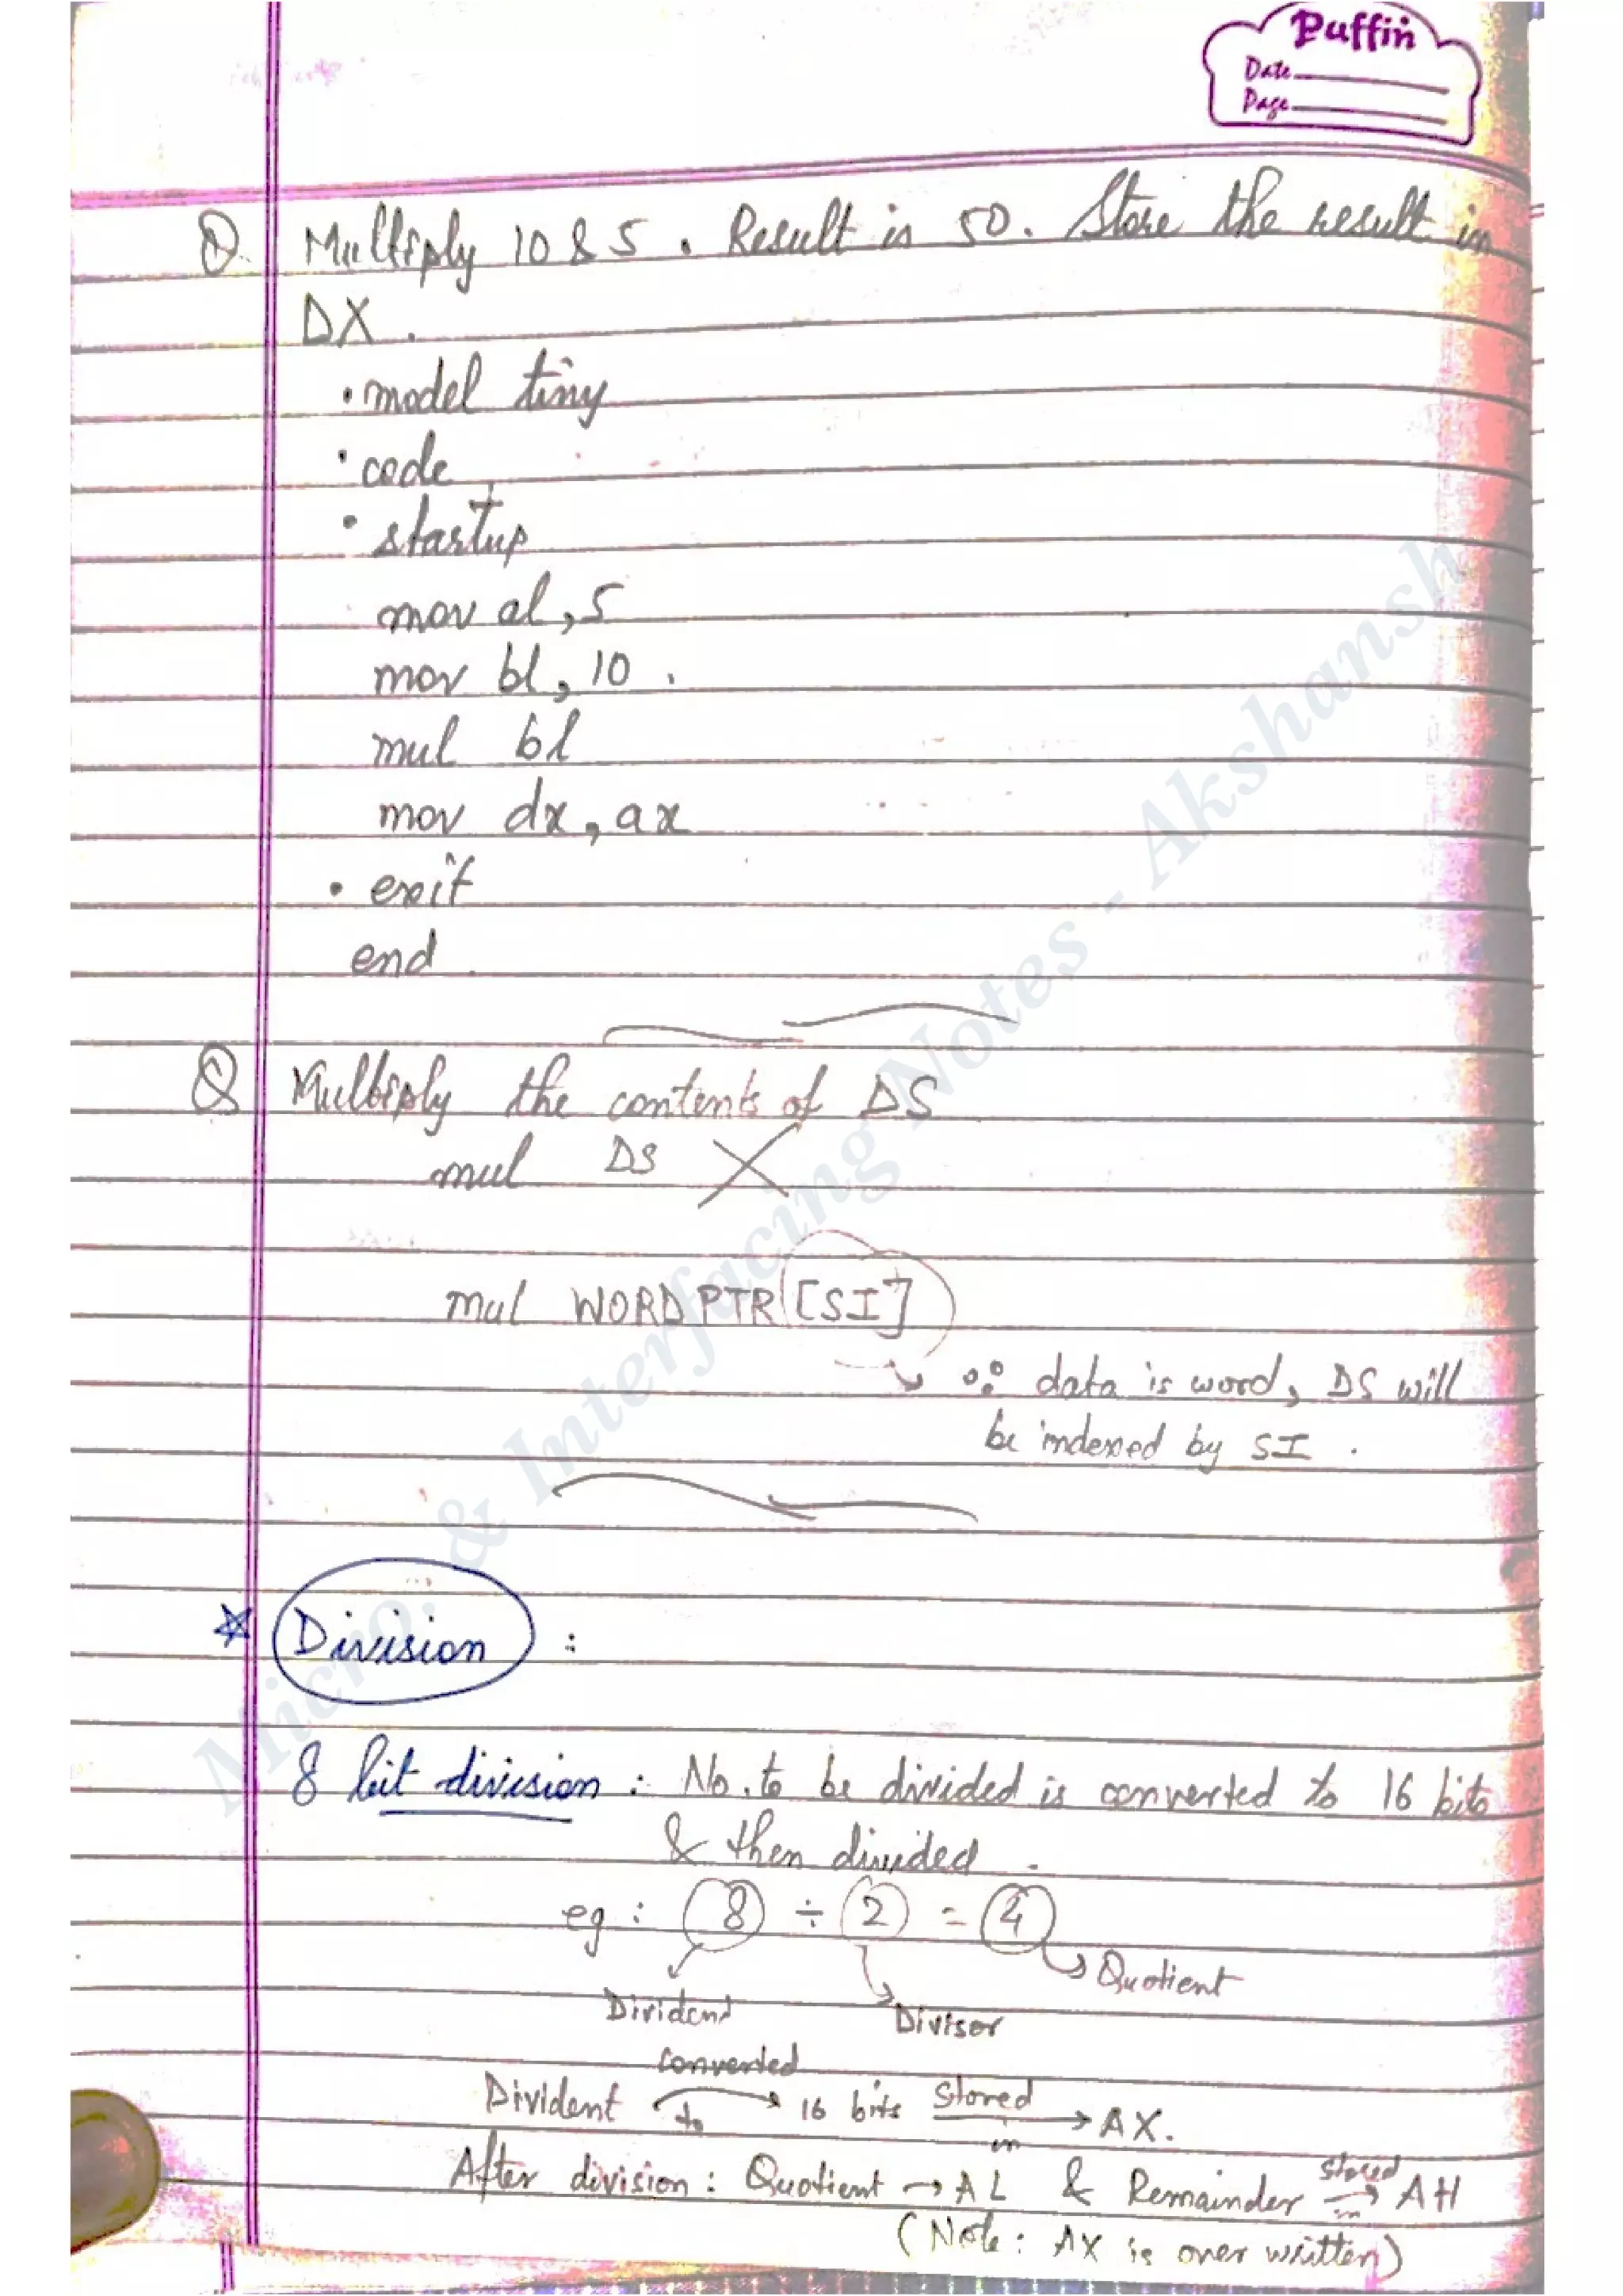 Puffin
Date
Page
Q. Multiply 10 & 5. Result is 50. Store the result in
DX.
.model tiny
.code
.startup
mov al, 5
mov bl, 10.
mul bl
mov dx, ax
.exit
end.
Q Multiply the contents of DS
mul DS X
mul WORD PTR [SI]
∵ data is word, DS will
be indexed by SI.
* Division :
8 bit division : No. to be divided is converted to 16 bits
& then divided.
eg : 8 ÷ 2 = 4
Quotient
Divident Divisor
converted
Divident to → 16 bits stored in → AX.
After division : Quotient → AL & Remainder stored in → AH
(Note : AX is over written)
Micro. & Interfacing Notes - Akshansh